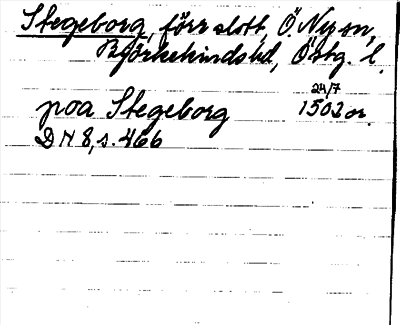 Stegeborg, förr slott, Ö. Ny sn,
Björkekinds hd, Östg. l.
24/7
poa Stegeborg 1502 or.
DN 8, s. 466